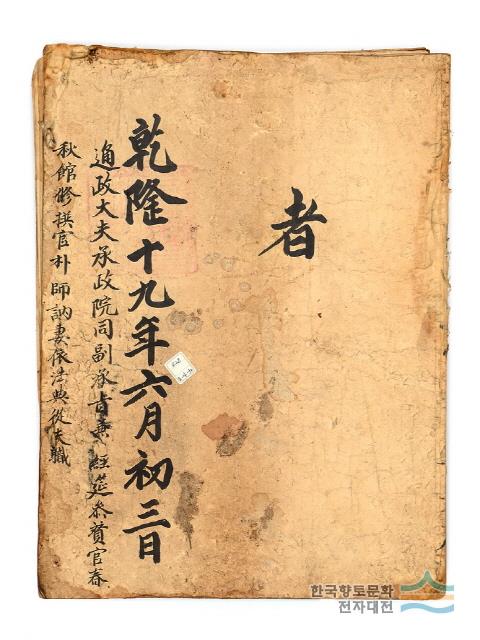 者
乾隆十九年六月初三日
通政大夫承政院同副承旨兼 經筵參賛官春
秋館修撰官朴師訥妻依法典從夫職
한국향토문화
전자대전